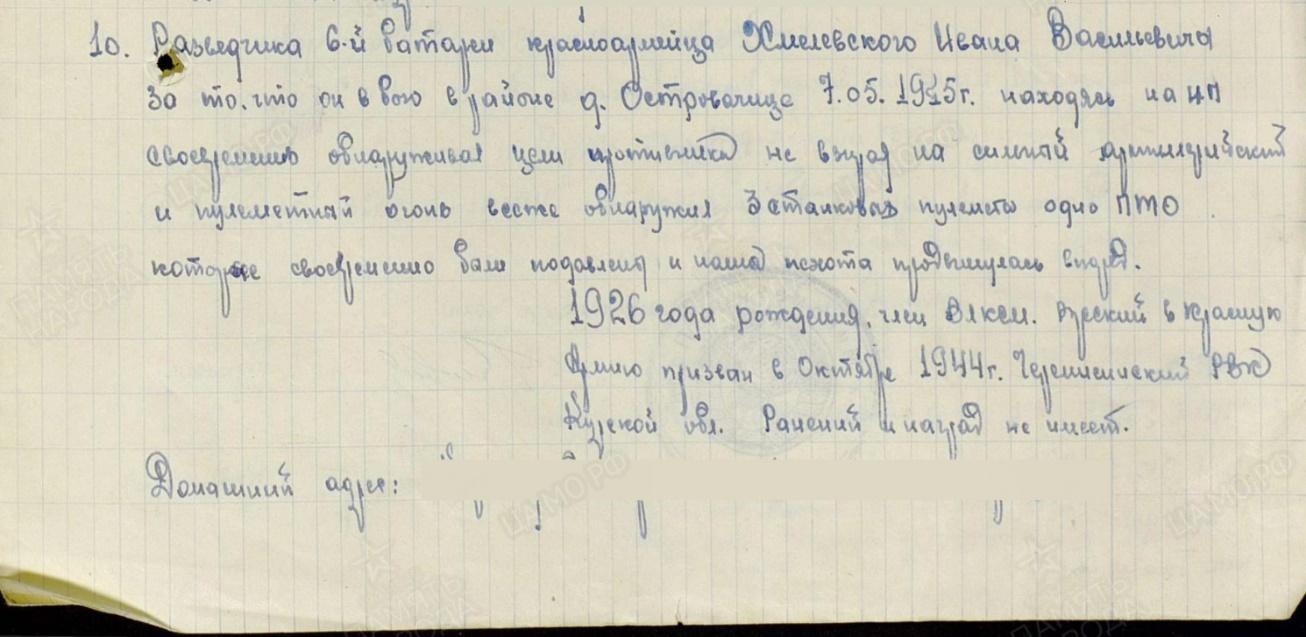 10. Разведчика 6-й батареи красноармейца Хмелевского Ивана Васильевича
За то, что он в бою в районе д. Островачице 7.05.1945г. находясь на НП
своевременно обнаруживал цели противника не взирая на сильный артиллерийский
и пулеметный огонь весже обнаружил 3 станковых пулемета одно ПТО
которые своевременно были подавлены и наша пехота продвинулась вперед.
1926 года рождения, член ВЛКСМ. Русский в Красную
Армию призван в Октябре 1944г. Черемисинский РВК
Курской обл. Ранений и наград не имеет.
Домашний адрес: